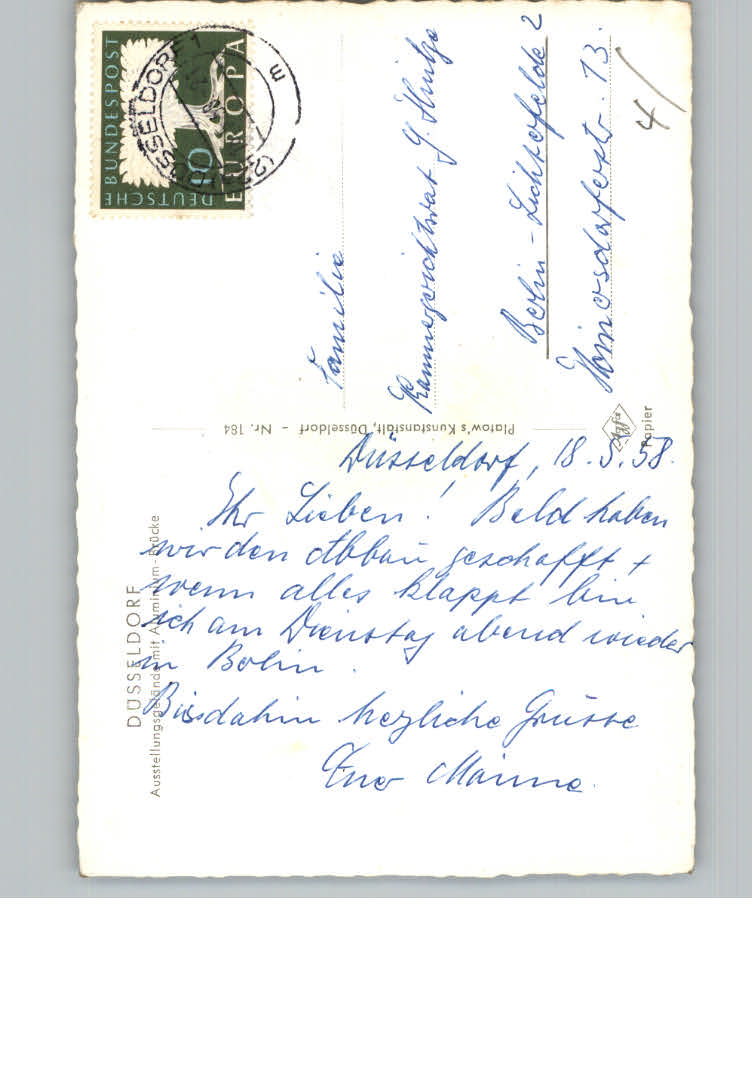 Düsseldorf, 18.5.58.
Ihr Lieben! Bald haben
wir den Abbau geschafft +
wenn alles klappt bin
ich am Dienstag abend wieder
in Berlin.
Bis dahin herzliche Grüsse
Familie
Kammergerichtsrat
Berlin-Lichterfelde 2
13.
4/
DÜSSELDORF
Ausstellungsgelände mit Aluminium-Brücke
Platow's Kunstanstalt, Düsseldorf - Nr. 184
Agfa
Papier
DEUTSCHE BUNDESPOST
10
EUROPA
DÜSSELDORF 1